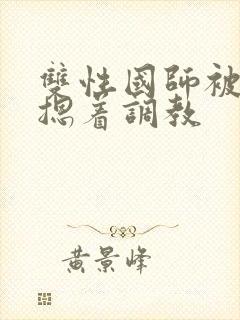 雙性國師被
摁着調教
黃景峰